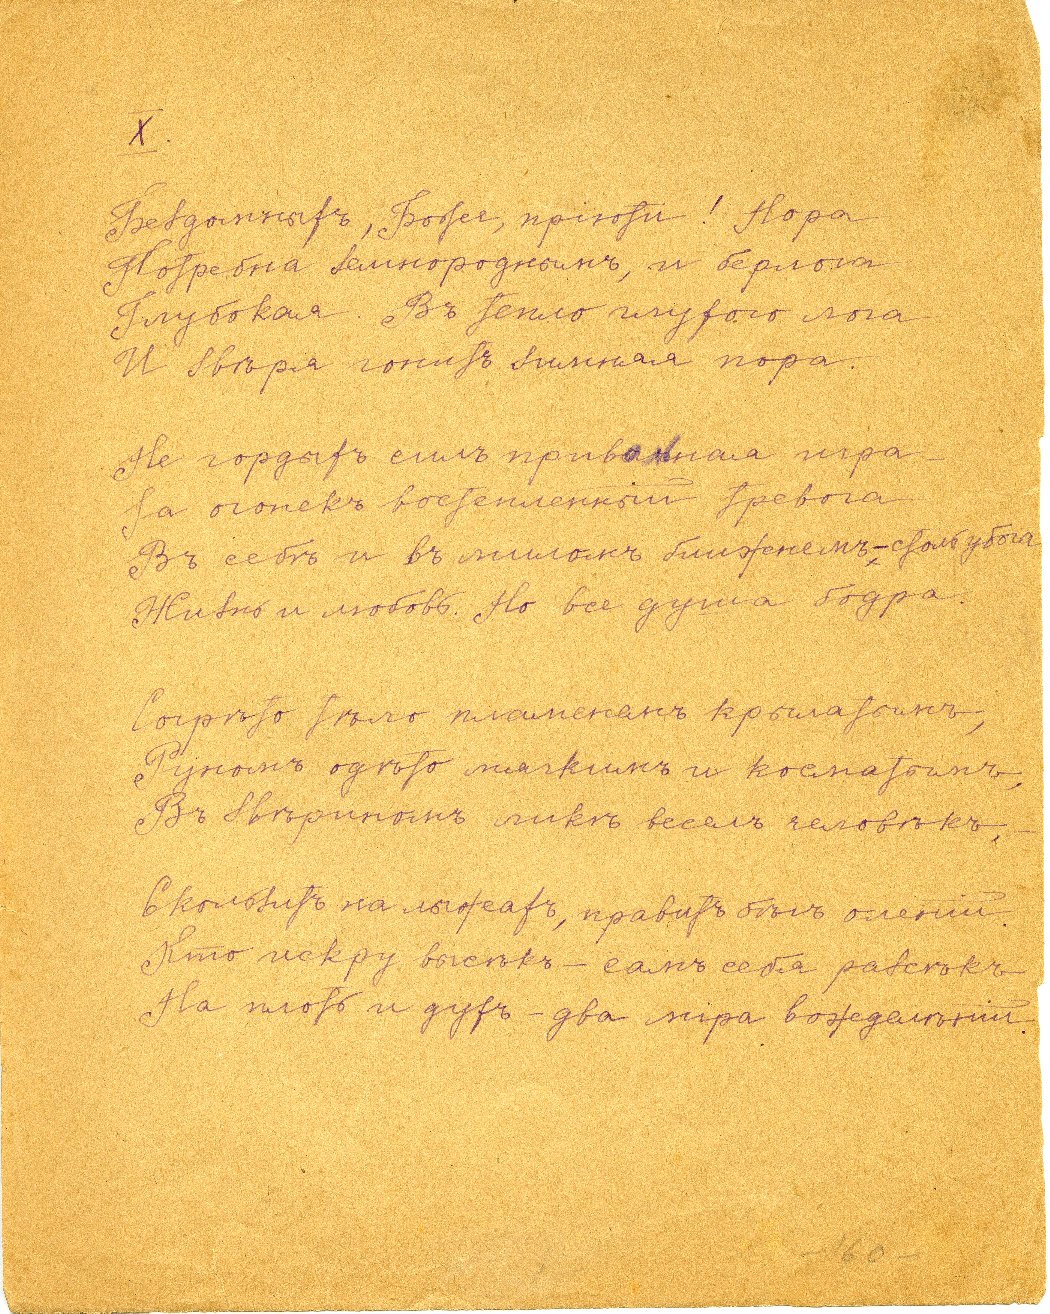 X.
Бездомныхъ, Боже, пріюти! Нора
Потребна земнороднымъ, и берлога
Глубокая. Въ тепло глухого лога
И звѣря гонитъ зимняя пора.
Не гордыхъ силъ привольная игра –
За огонекъ востепленный тревога
Въ себѣ и въ миломъ ближнемъ, – столь убога
Жизнь и любовь. Но все душа бодра.
Согрѣто тѣло пламенемъ крылатымъ,
Руномъ одѣто мягкимъ и косматымъ,
Въ звѣриномъ ликѣ веселъ человѣкъ, –
Скользитъ на лыжахъ, правитъ бѣгъ оленій.
Кто искру высѣкъ – самъ себя разсѣкъ
На плоть и духъ – два міра вожделѣній.
– 60 –